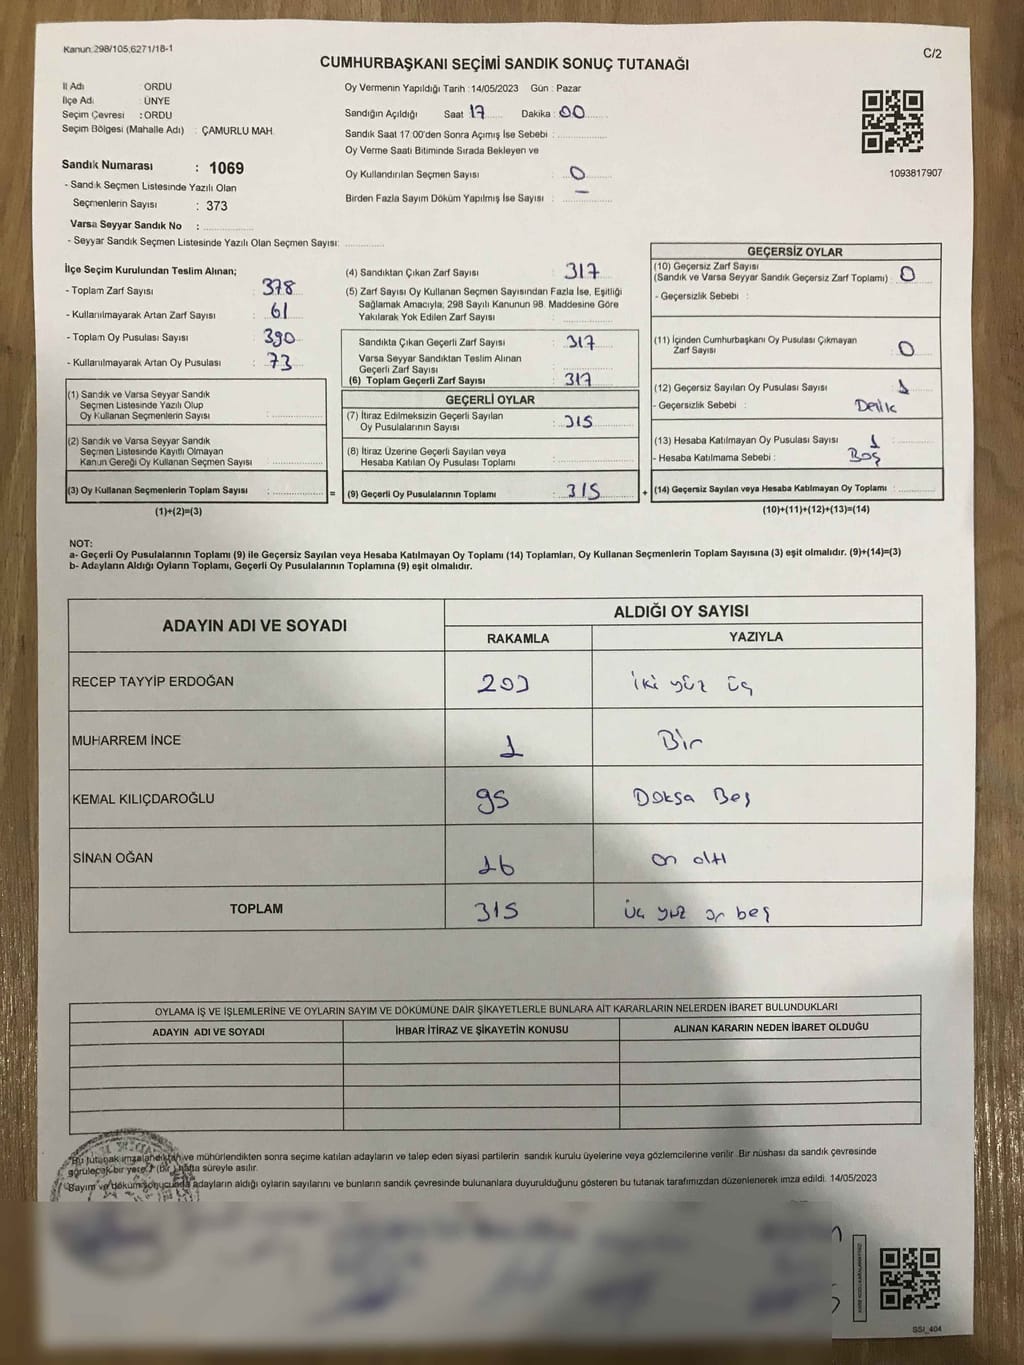 Kanun:298/105,6271/18-1
C/2
CUMHURBAŞKANI SEÇİMİ SANDIK SONUÇ TUTANAĞI
İl Adı ORDU
İlçe Adı : ÜNYE
Seçim Çevresi : ORDU
Seçim Bölgesi (Mahalle Adı) : ÇAMURLU MAH.
Oy Vermenin Yapıldığı Tarih : 14/05/2023 Gün : Pazar
Sandığın Açıldığı Saat 17 Dakika : 00
Sandık Saat 17:00'den Sonra Açımış İse Sebebi :
Oy Verme Saati Bitiminde Sırada Bekleyen ve
Oy Kullandırılan Seçmen Sayısı : 0
Birden Fazla Sayım Döküm Yapılmış İse Sayısı : –
1093817907
Sandık Numarası : 1069
- Sandık Seçmen Listesinde Yazılı Olan
Seçmenlerin Sayısı : 373
Varsa Seyyar Sandık No :
- Seyyar Sandık Seçmen Listesinde Yazılı Olan Seçmen Sayısı:
İlçe Seçim Kurulundan Teslim Alınan;
- Toplam Zarf Sayısı : 378
- Kullanılmayarak Artan Zarf Sayısı : 61
- Toplam Oy Pusulası Sayısı : 390
- Kullanılmayarak Artan Oy Pusulası : 73
(1) Sandık ve Varsa Seyyar Sandık
Seçmen Listesinde Yazılı Olup
Oy Kullanan Seçmenlerin Sayısı :
(2) Sandık ve Varsa Seyyar Sandık
Seçmen Listesinde Kayıtlı Olmayan
Kanun Gereği Oy Kullanan Seçmen Sayısı :
(3) Oy Kullanan Seçmenlerin Toplam Sayısı : =
(1)+(2)=(3)
(4) Sandıktan Çıkan Zarf Sayısı : 317
(5) Zarf Sayısı Oy Kullanan Seçmen Sayısından Fazla İse, Eşitliği
Sağlamak Amacıyla, 298 Sayılı Kanunun 98. Maddesine Göre
Yakılarak Yok Edilen Zarf Sayısı :
Sandıkta Çıkan Geçerli Zarf Sayısı : 317
Varsa Seyyar Sandıktan Teslim Alınan
Geçerli Zarf Sayısı :
(6) Toplam Geçerli Zarf Sayısı : 317
GEÇERLİ OYLAR
(7) İtiraz Edilmeksizin Geçerli Sayılan
Oy Pusulalarının Sayısı : 315
(8) İtiraz Üzerine Geçerli Sayılan veya
Hesaba Katılan Oy Pusulası Toplamı :
(9) Geçerli Oy Pusulalarının Toplamı : 315 +
GEÇERSİZ OYLAR
(10) Geçersiz Zarf Sayısı
(Sandık ve Varsa Seyyar Sandık Geçersiz Zarf Toplamı) : 0
- Geçersizlik Sebebi :
(11) İçinden Cumhurbaşkanı Oy Pusulası Çıkmayan
Zarf Sayısı : 0
(12) Geçersiz Sayılan Oy Pusulası Sayısı : 1
- Geçersizlik Sebebi : Delik
(13) Hesaba Katılmayan Oy Pusulası Sayısı : 1
- Hesaba Katılmama Sebebi : Boş
(14) Geçersiz Sayılan veya Hesaba Katılmayan Oy Toplamı :
(10)+(11)+(12)+(13)=(14)
NOT:
a- Geçerli Oy Pusulalarının Toplamı (9) ile Geçersiz Sayılan veya Hesaba Katılmayan Oy Toplamı (14) Toplamları, Oy Kullanan Seçmenlerin Toplam Sayısına (3) eşit olmalıdır. (9)+(14)=(3)
b- Adayların Aldığı Oyların Toplamı, Geçerli Oy Pusulalarının Toplamına (9) eşit olmalıdır.
ADAYIN ADI VE SOYADI ALDIĞI OY SAYISI
RAKAMLA YAZIYLA
RECEP TAYYİP ERDOĞAN 203 iki yüz üç
MUHARREM İNCE 1 Bir
KEMAL KILIÇDAROĞLU 95 Doksa Beş
SİNAN OĞAN 16 on altı
TOPLAM 315 üç yüz on beş
OYLAMA İŞ VE İŞLEMLERİNE VE OYLARIN SAYIM VE DÖKÜMÜNE DAİR ŞİKAYETLERLE BUNLARA AİT KARARLARIN NELERDEN İBARET BULUNDUKLARI
ADAYIN ADI VE SOYADI İHBAR İTİRAZ VE ŞİKAYETİN KONUSU ALINAN KARARIN NEDEN İBARET OLDUĞU
"Bu tutanak imzalandıktan ve mühürlendikten sonra seçime katılan adayların ve talep eden siyasi partilerin sandık kurulu üyelerine veya gözlemcilerine verilir. Bir nüshası da sandık çevresinde
görülecek bir yere 7 (Bir) hafta süreyle asılır.
Sayım ve döküm sonucunda adayların aldığı oyların sayılarını ve bunların sandık çevresinde bulunanlara duyurulduğunu gösteren bu tutanak tarafımızdan düzenlenerek imza edildi. 14/05/2023
SSI_404